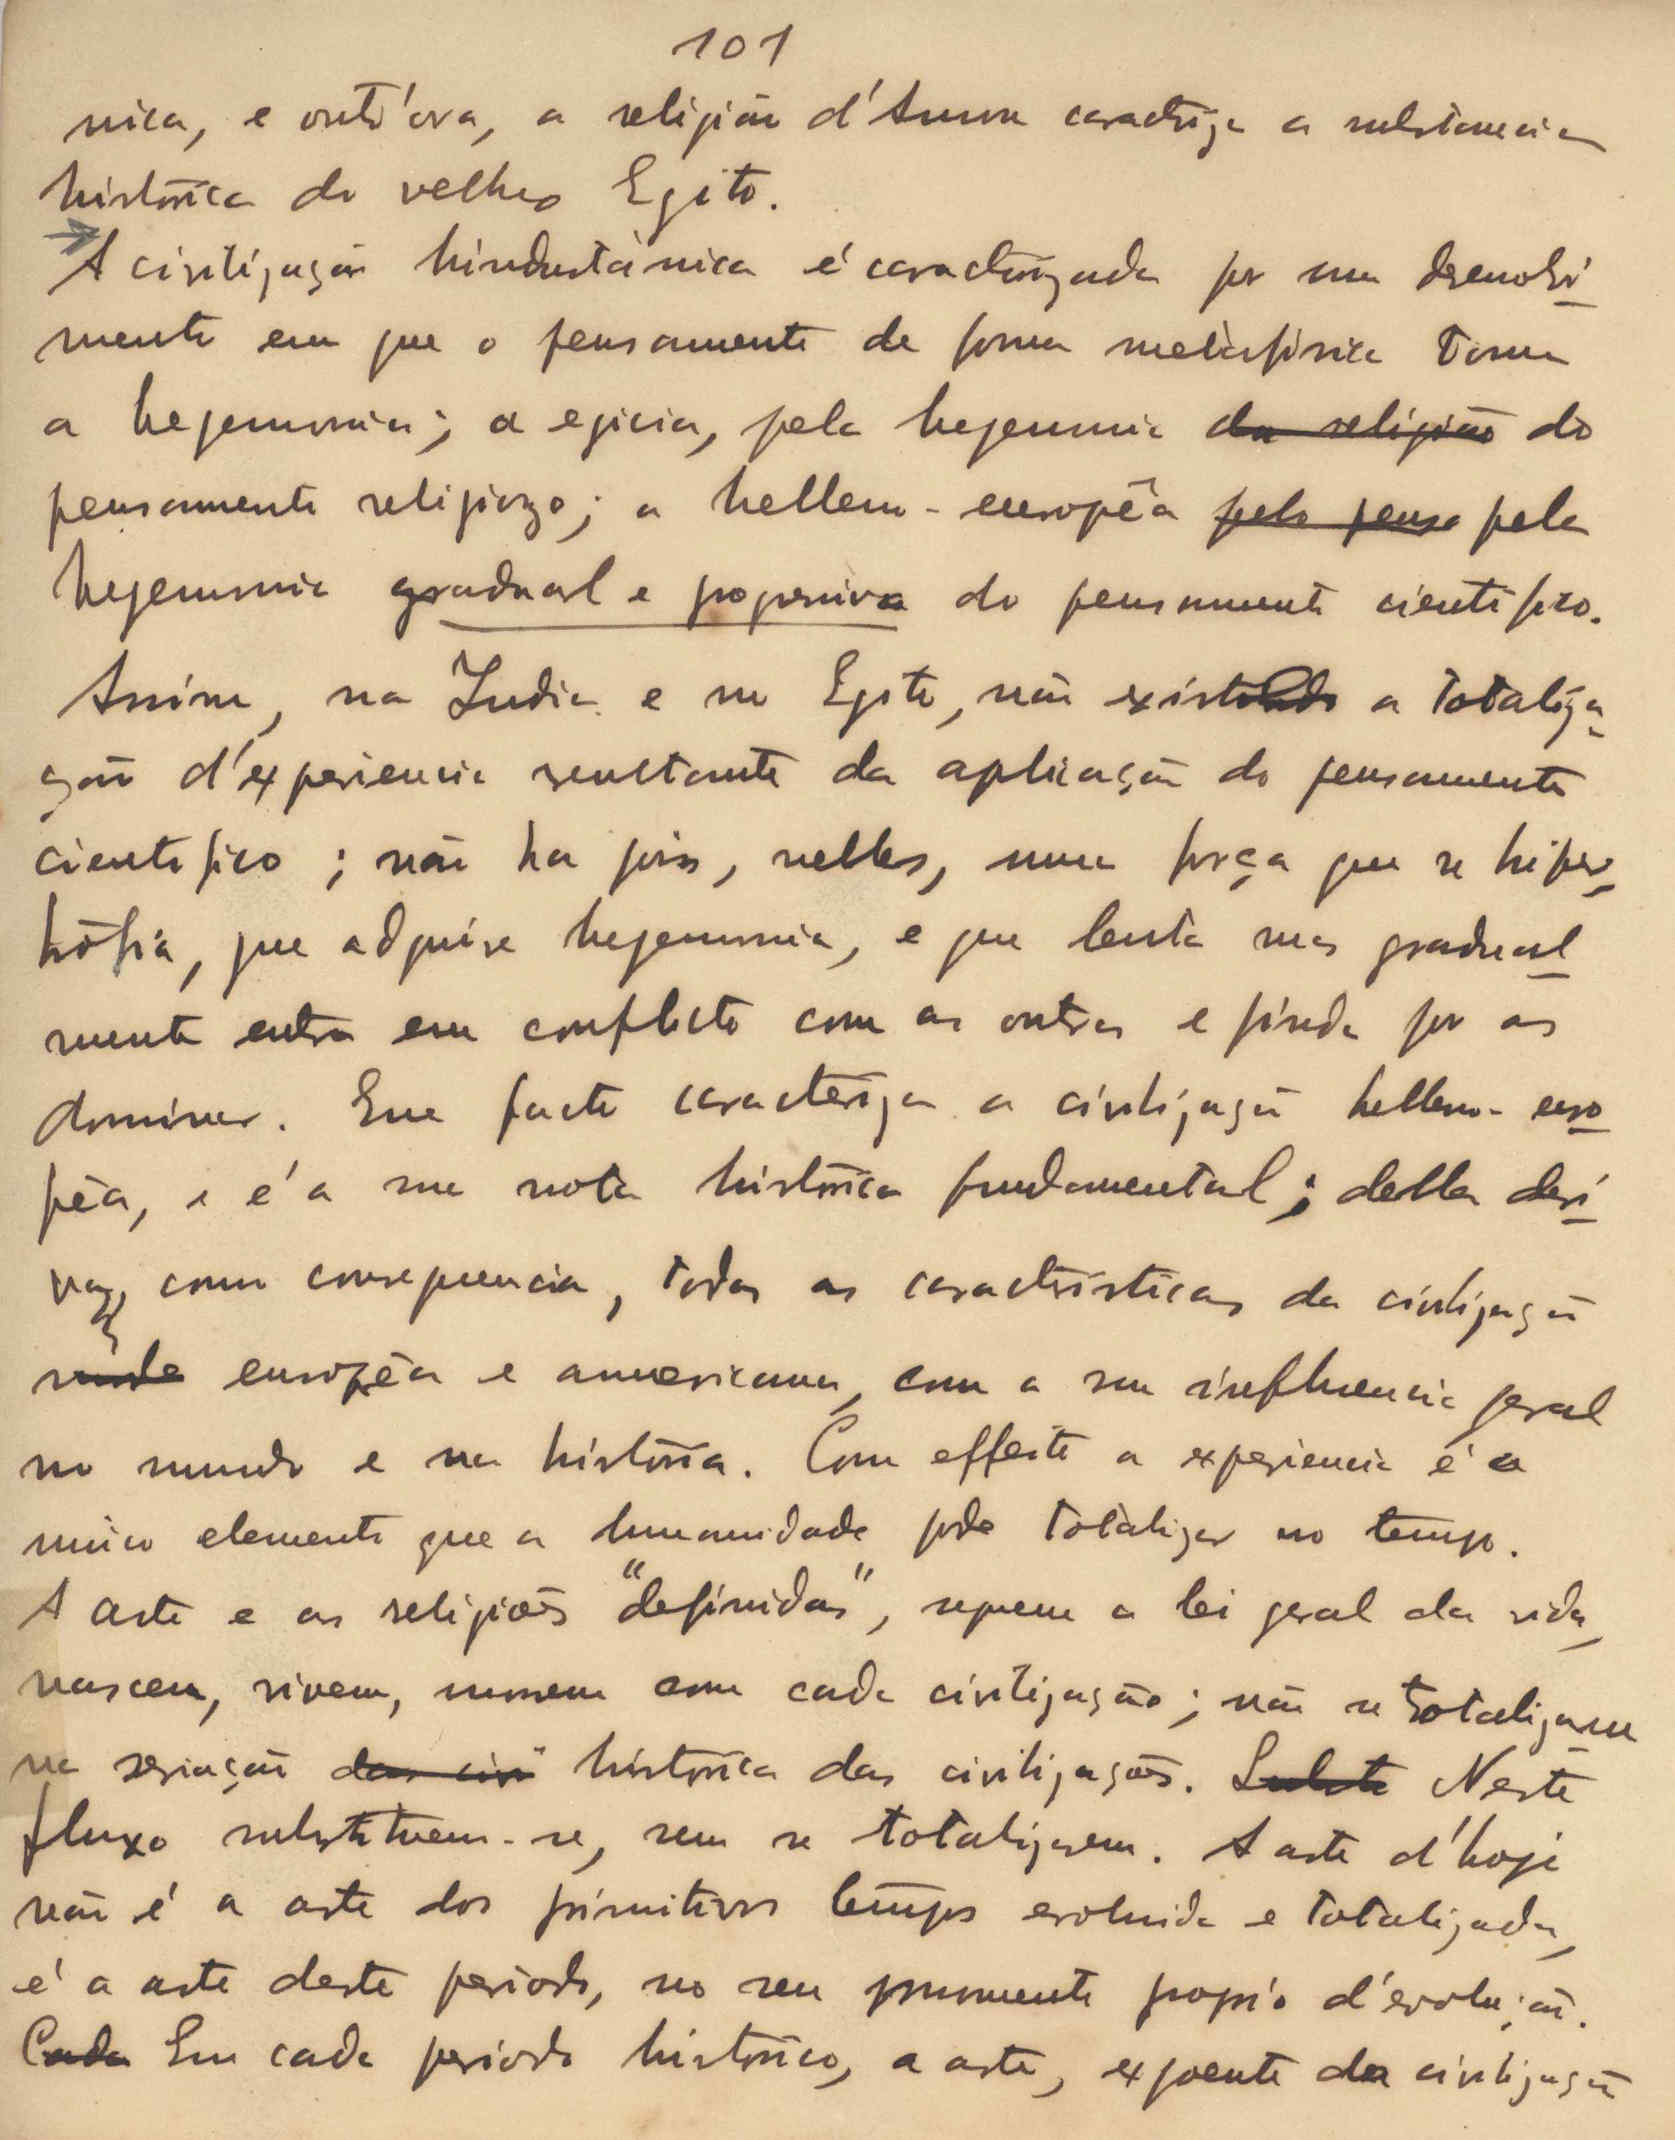 101
nica, e outr'ora, a religião d'Amon caracteriza a substancia
histórica do velho Egito.
A civilização hindustànica é caracterizada por um desenvolvi-
mento em que o pensamento de forma metàfisica toma
a hegemonia; a egicia, pela hegemonia da religião do
pensamento religiozo; a helleno-européa pelo pensa pela
hegemonia gradual e progressiva do pensamento cientifico.
Assim, na India e no Egito, não existindo a totaliza-
ção d'experiencia rezultante da aplicação do pensamento
cientifico; não ha pois, nelles, uma força que se hiper-
trófia, que adquire hegemonia, e que lenta mas gradual-
mente entra em conflicto com as outras e finda por as
dominar. Esse facto caracteriza a civilização helleno-euro-
péa, e é a sua nota histórica fundamental; della deri-
vam, como consequencia, todas as caracteristicas da civilização
européa e americana, com a sua influencia geral
no mundo e na história. Com effeito a experiencia é o
unico elemento que a humanidade pode totalizar no tempo.
A arte e as religiões "definidas", seguem a lei geral da vida,
nascem, vivem, morrem com cada civilização; não se totalizam
na seriação das civi histórica das civilizações. Neste
fluxo substituem-se, sem se totalizarem. A arte d'hoje
não é a arte dos primitivos tempos evoluida e totalizada,
é a arte deste periodo, no seu momento proprio d'evolução.
Cada Em cada periodo histórico, a arte, expoente da civilização